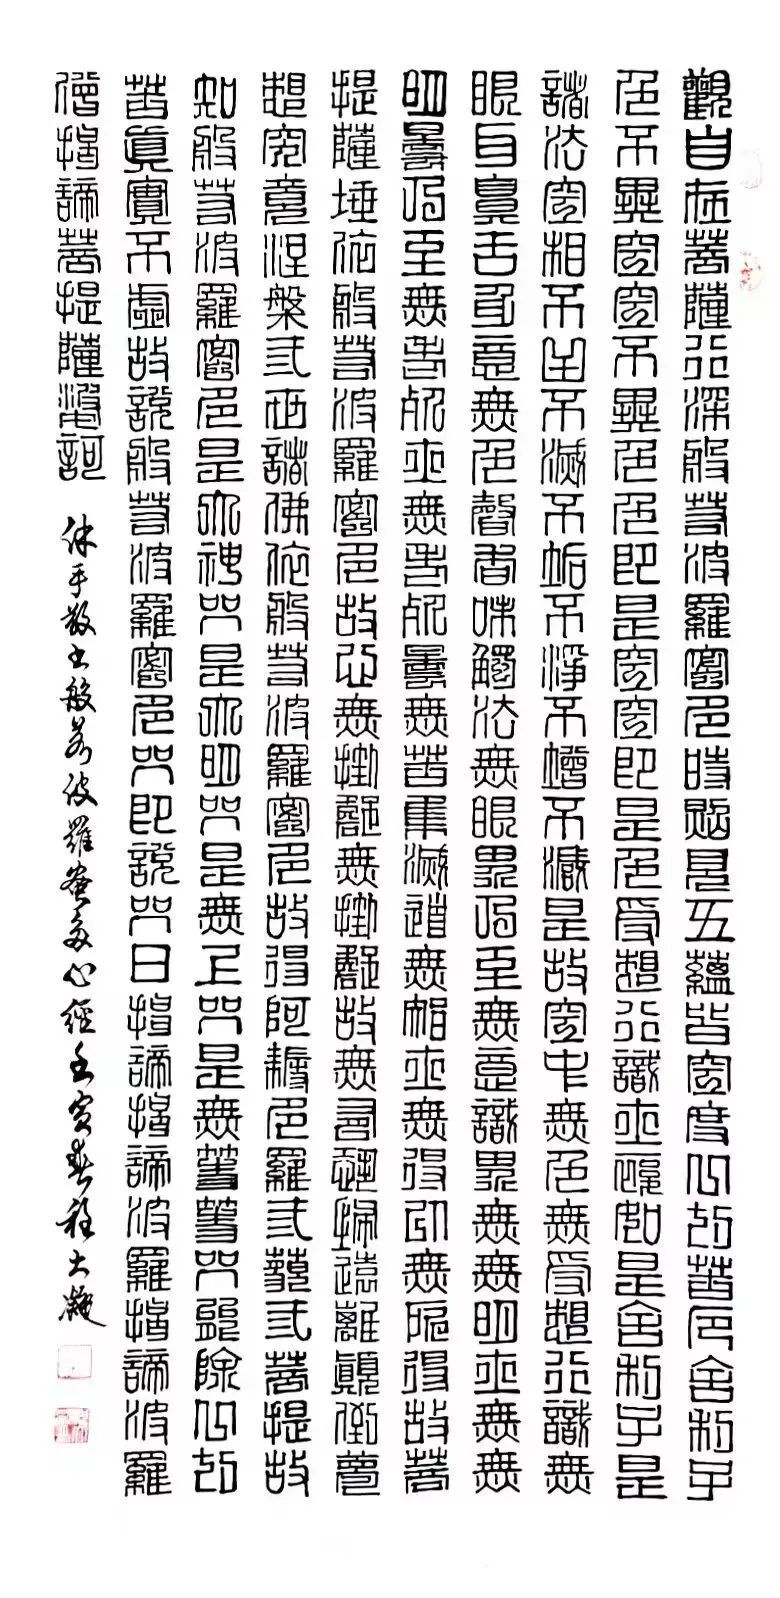 觀自在菩薩行深般若波羅蜜多時照見五蘊皆空度一切苦厄舍利子
色不異空空不異色色即是空空即是色受想行識亦復如是舍利子是
諸法空相不生不滅不垢不淨不增不減是故空中無色無受想行識無
眼耳鼻舌身意無色聲香味觸法無眼界乃至無意識界無無明亦無無
明盡乃至無老死亦無老死盡無苦集滅道無智亦無得以無所得故菩
提薩埵依般若波羅蜜多故心無掛礙無掛礙故無有恐怖遠離顛倒夢
想究竟涅槃三世諸佛依般若波羅蜜多故得阿耨多羅三藐三菩提故
知般若波羅蜜多是大神咒是大明咒是無上咒是無等等咒能除一切
苦真實不虛故說般若波羅蜜多咒即說咒曰揭諦揭諦波羅揭諦波羅
僧揭諦菩提薩婆訶
沐手敬書般若波羅蜜多心經壬寅春程大